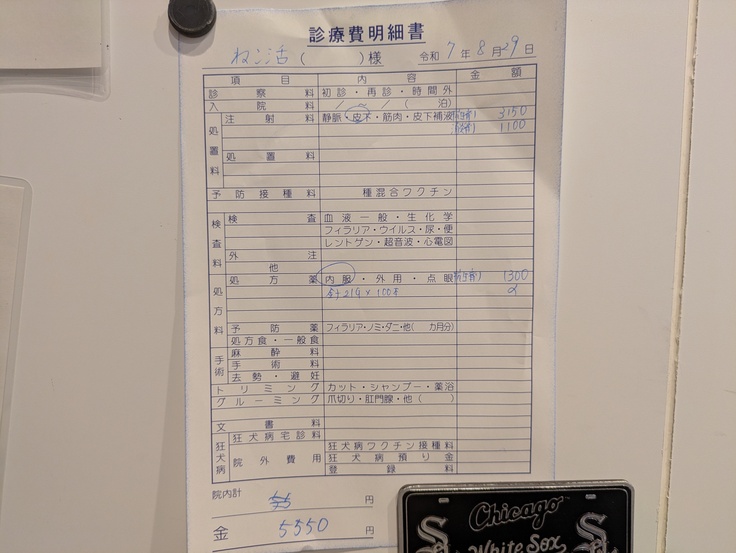 診療費明細書
ねこ活 (      ) 様 令和 7 年 8 月 29 日
項目 内容 金額
診察料 初診・再診・時間外
入院料 / ~ / ( 泊)
処置料 注射料 静脈・皮下・筋肉・皮下補液 3150
1100
処置料
予防接種料 種混合ワクチン
検査料 検査 血液一般・生化学
フィラリア・ウイルス・尿・便
レントゲン・超音波・心電図
外注
他
処方料 処方薬 内服・外用・点眼 1300
予防薬 フィラリア・ノミ・ダニ・他( カ月分)
処方食・一般食
手術 麻酔料
手術料
去勢・避妊
トリミング カット・シャンプー・薬浴
グルーミング 爪切り・肛門腺・他( )
文書料
狂犬病 狂犬病宅診料
院外費用 狂犬病ワクチン接種料
狂犬病預り金
登録料
院内計 円
金 5550 円
Chicago
White Sox